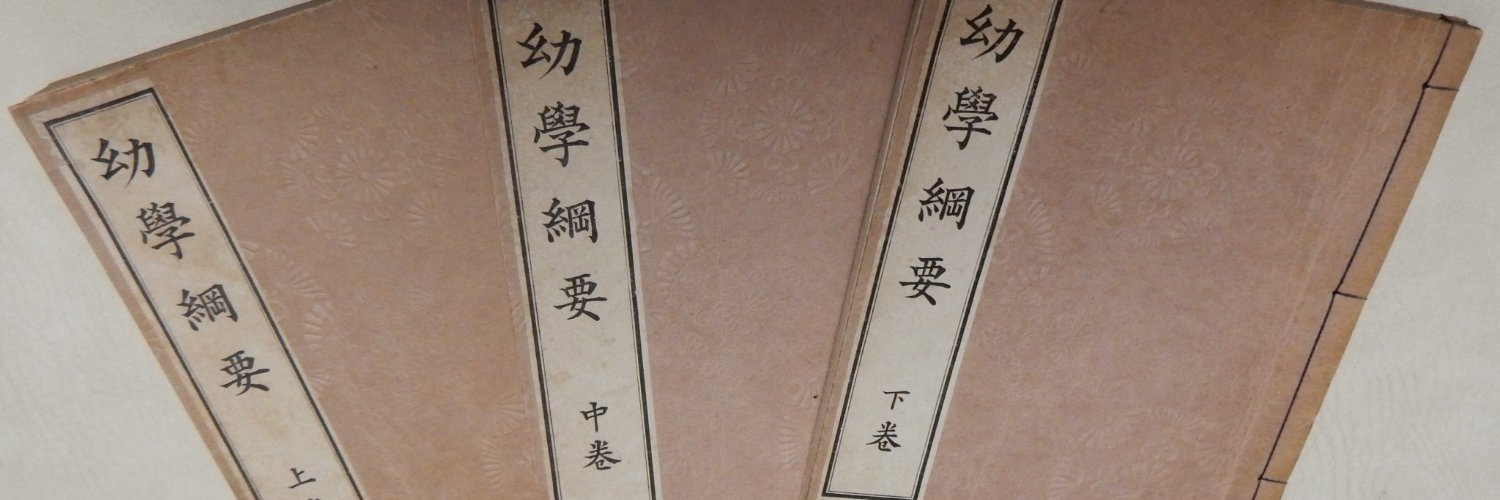 幼學綱要 上
幼學綱要 中卷
幼學綱要 下卷